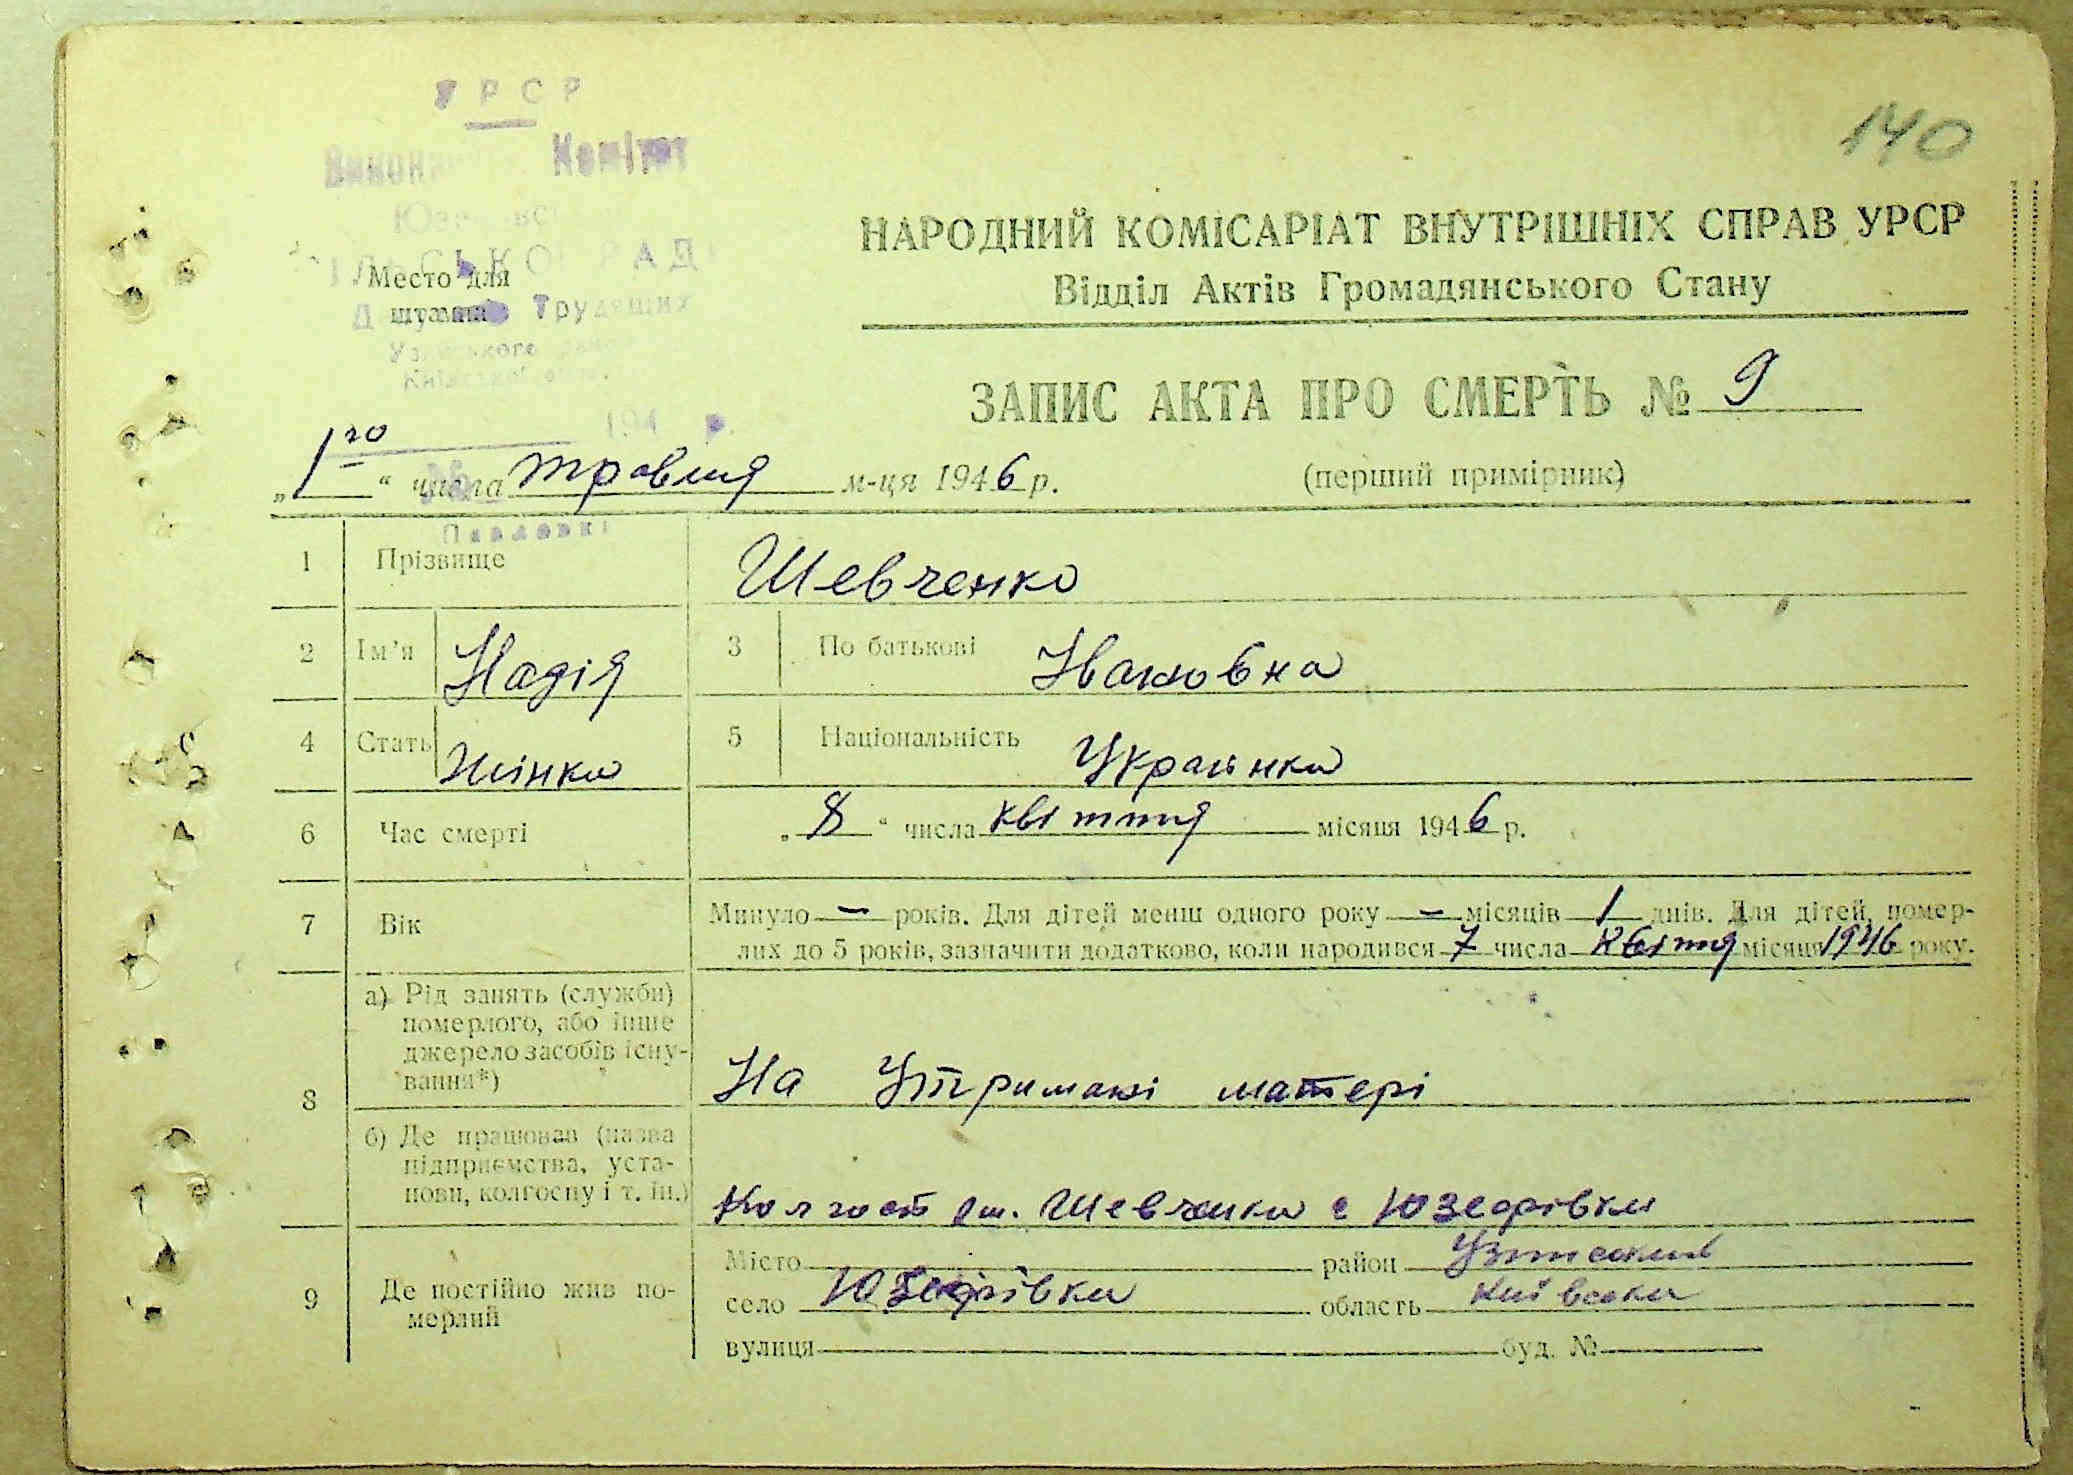 УРСР
140
Комітет
НАРОДНИЙ КОМІСАРІАТ ВНУТРІШНІХ СПРАВ УРСР
Место для
Відділ Актів Громадянського Стану
штампа Трудящих
ЗАПИС АКТА ПРО СМЕРТЬ № 9
194 р.
„1го“ числа травня м-ця 1946 р. (перший примірник)
1 Прізвище Шевченко
2 Ім’я Надія 3 По батькові Івановна
4 Стать жінка 5 Національність Українка
6 Час смерті „8“ числа квітня місяця 1946 р.
7 Вік Минуло — років. Для дітей менш одного року — місяців 1 днів. Для дітей, помер-
лих до 5 років, зазначити додатково, коли народився 7 числа квітня місяця 1946 року.
8 а) Рід занять (служби)
померлого, або інше
джерело засобів існу-
вання*) На Утримані матері
б) Де працював (назва
підприємства, уста-
нови, колгоспу і т. ін.) Колгосп ім. Шевченка с Юзефівка
9 Де постійно жив по-
мерлий
Місто район Узинський
село Юзефівка область Київська
вулиця буд. №